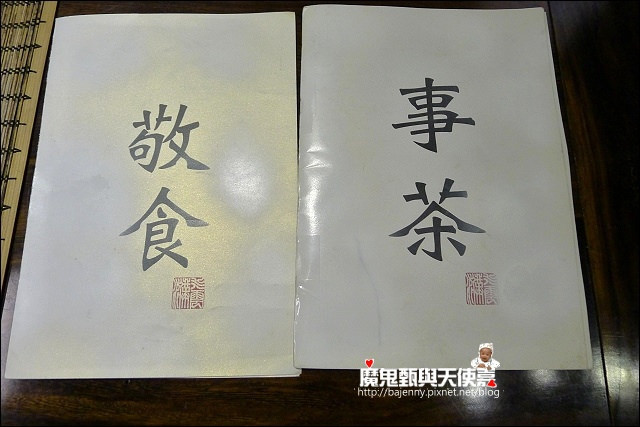 敬食
事茶
魔鬼甄與天使嘉
http://bajenny.pixnet.net/blog